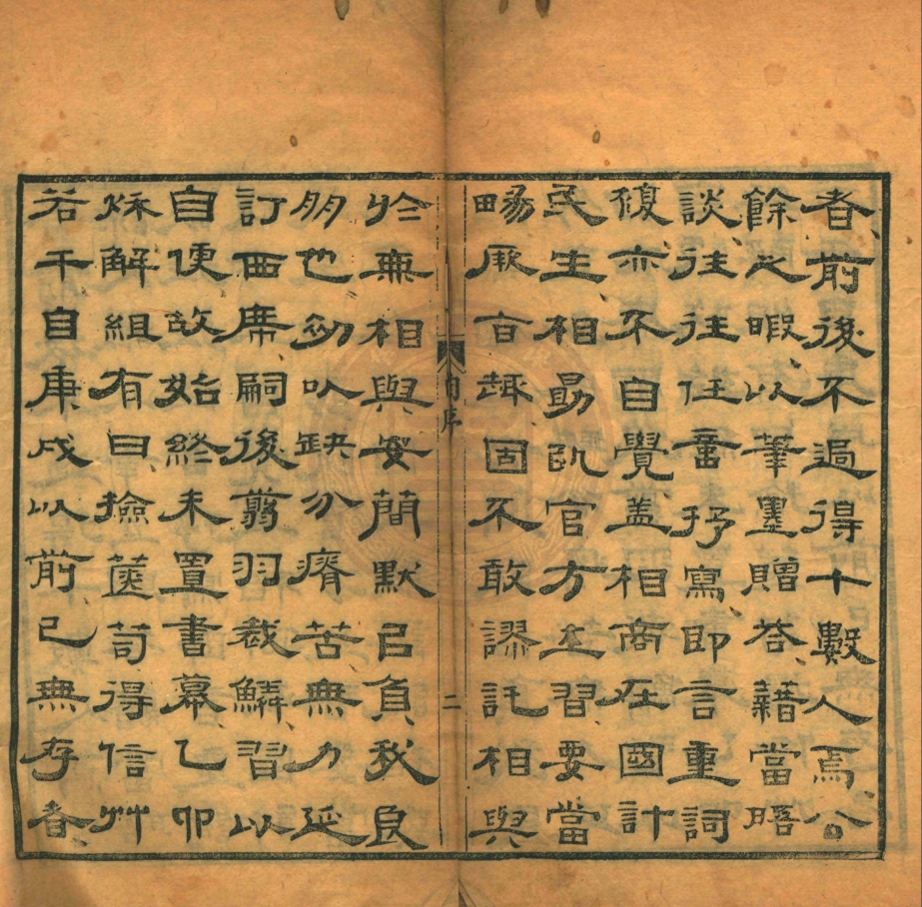 者前後不過得十數人焉公
餘之暇以筆墨贈答藉當晤
談往往任意抒寫即言重詞
複亦不自覺蓋相商在國計
民生相勗官方士習要當
暢厥旨趣固不敢謬託相與
自序
二
於無相與妄簡默㠯負我良
朋也幼以缺分瘠苦無力延
訂西席嗣後翦羽裁鱗習以
自便故始終未置書幕乙卯
秌解組有日撿篋笥得信艸
若干自庚戌以前已無存者